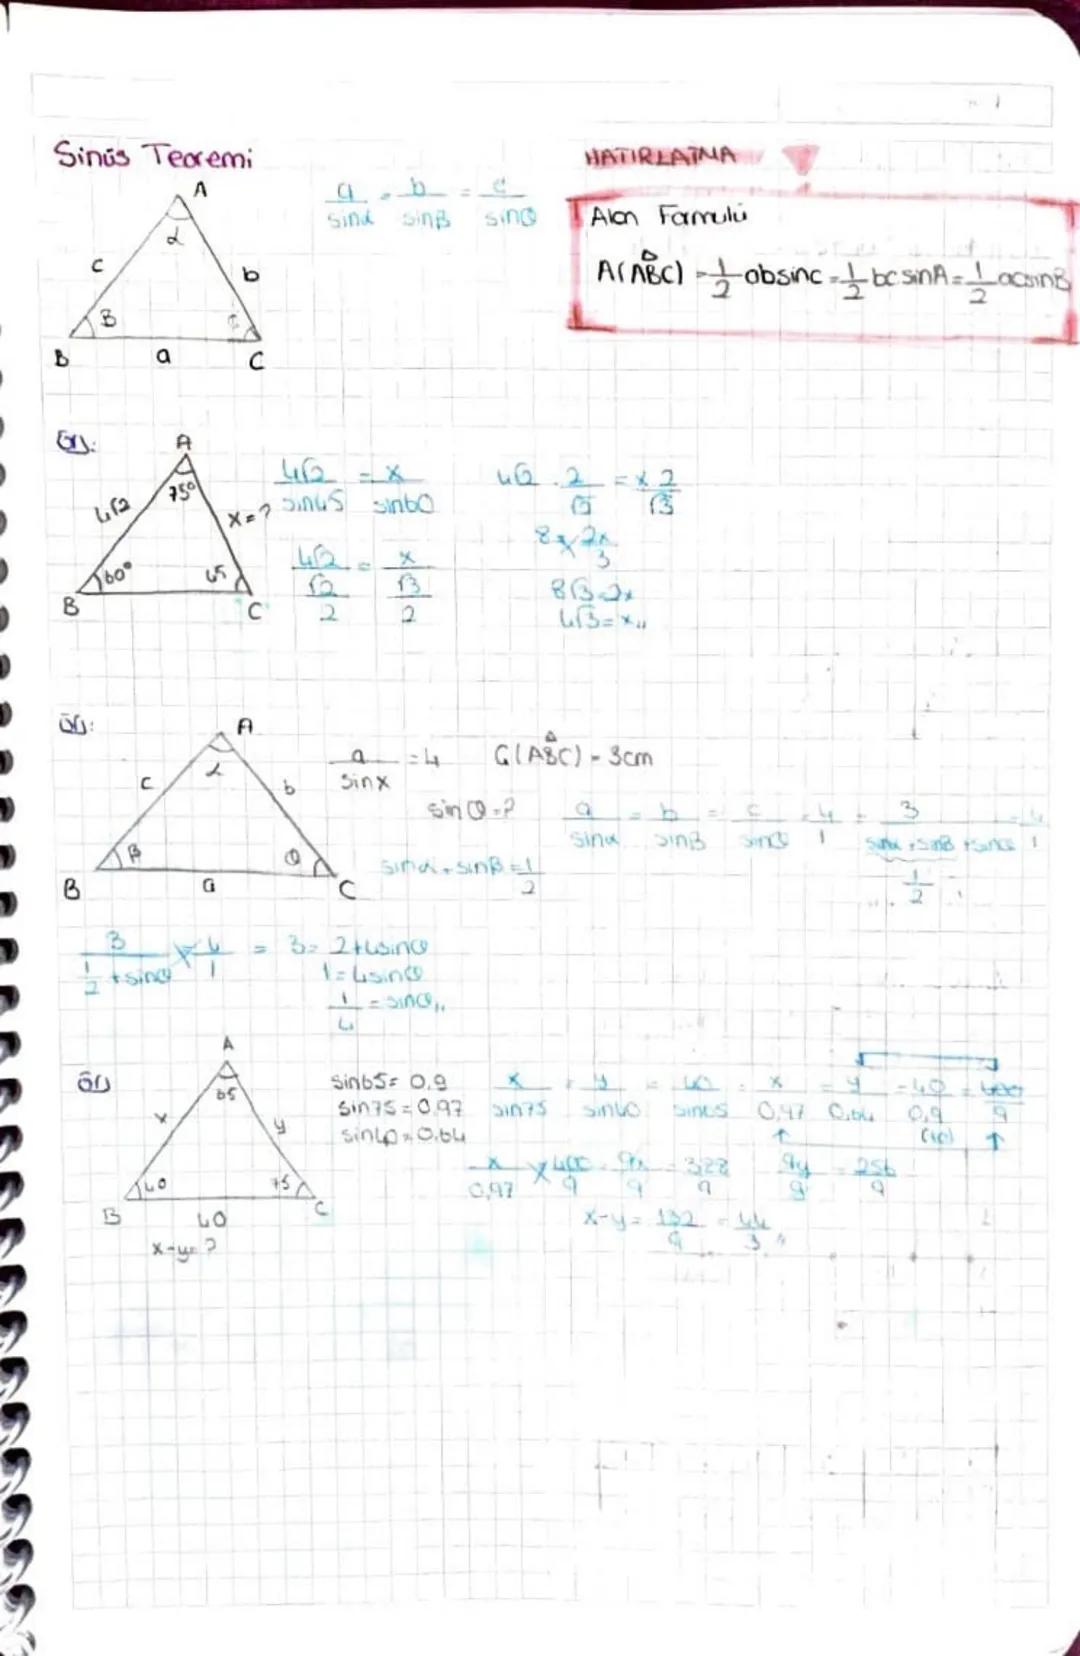 Sinüs Teoremi
HATIRLATMA
A
α
c
b
B
B
a
C
a/sinα = b/sinβ = c/sinθ
Alan Formülü
A(ABC) = 1/2 absinc = 1/2 bc sinA = 1/2 acsinB
Ör:
A
75°
4√2
x=?
60°
45
B
C
4√2/sin45 = x/sin60
4√2/(√2/2) = x/(√3/2)
8√3=2x
4√3=x,,
Ör:
A
α
c
b
β
θ
B
a
C
a/sinx = 4
G(ABC) = 3cm
sinθ=?
sinα+sinβ=1/2
a/sinα = b/sinβ = c/sinθ = 4/1 = 3/(sinα+sinβ+sinθ) = 4/1
1/2
3/(1/2+sinθ) 4/1 = 3=2+4sinθ
1=4sinθ
1/4=sinθ,,
Ör
A
65
x
y
40
75
B
40
C
x-y=?
sin65=0.9
sin75=0.97
sin40=0.64
x/sin75 = y/sin40 = 40/sin65 = x/0,97 = y/0,64 = 40/0,9 = 400/9
(10)
x/0,97 400/9 = 9x/9 = 388/9
9y/9 = 256/9
x-y = 132/9 = 44/3,,